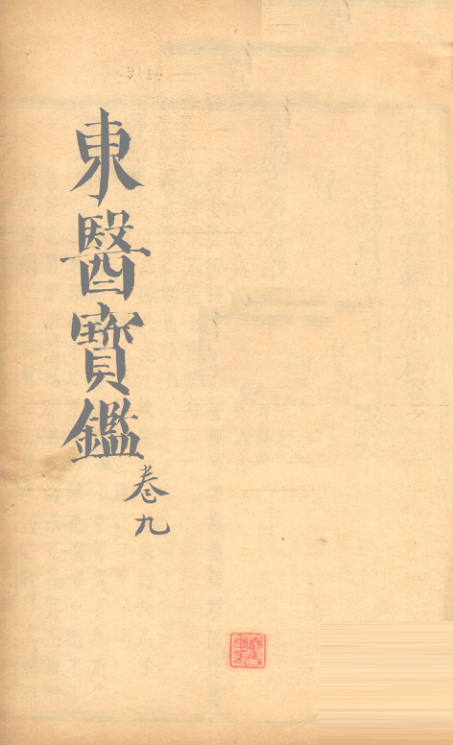 東醫寶鑑
卷九